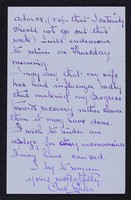 advice, (viz) that I certainly
should not go out this
week) I will endeavour
to return on Thursday
morning.
I may say that my wife
has had influenza badly
thus making my progress
towards recovery rather slower
than it may have done
I wish to tender an
apology for any inconvenience
I may have caused.
I beg to remain
yours respectfully
Chas